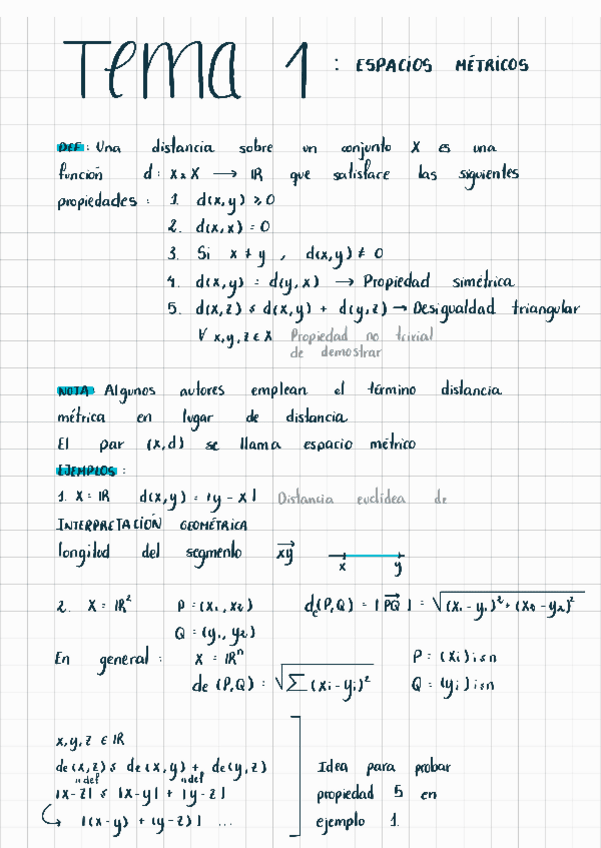 Tema 1 : ESPACIOS MÉTRICOS
DEF: Una distancia sobre un conjunto X es una
función d: X x X → IR que satisface las siguientes
propiedades: 1. d(x,y) ≥ 0
2. d(x,x) = 0
3. Si x ≠ y , d(x,y) ≠ 0
4. d(x,y) = d(y,x) → Propiedad simétrica
5. d(x,z) ≤ d(x,y) + d(y,z) → Desigualdad triangular
∀ x,y,z ∈ X Propiedad no trivial
de demostrar
NOTA Algunos autores emplean el término distancia
métrica en lugar de distancia
El par (X,d) se llama espacio métrico
EJEMPLOS:
1. X = IR d(x,y) = |y - x| Distancia euclídea de
INTERPRETACIÓN GEOMÉTRICA
longitud del segmento xy
x y
2. X = IR² P = (x₁, x₂) de(P,Q) = |PQ| = √(x₁ - y₁)² + (x₂ - y₂)²
Q = (y₁, y₂)
En general: X = IRⁿ P = (xi) i≤n
de (P,Q) = √∑(xi - yi)² Q = (yi) i≤n
x,y,z ∈ IR
de(x,z) ≤ de(x,y) + de(y,z) Idea para probar
"def "def
|x-z| ≤ |x-y| + |y-z| propiedad 5 en
↳ |(x-y) + (y-z)| ... ejemplo 1.